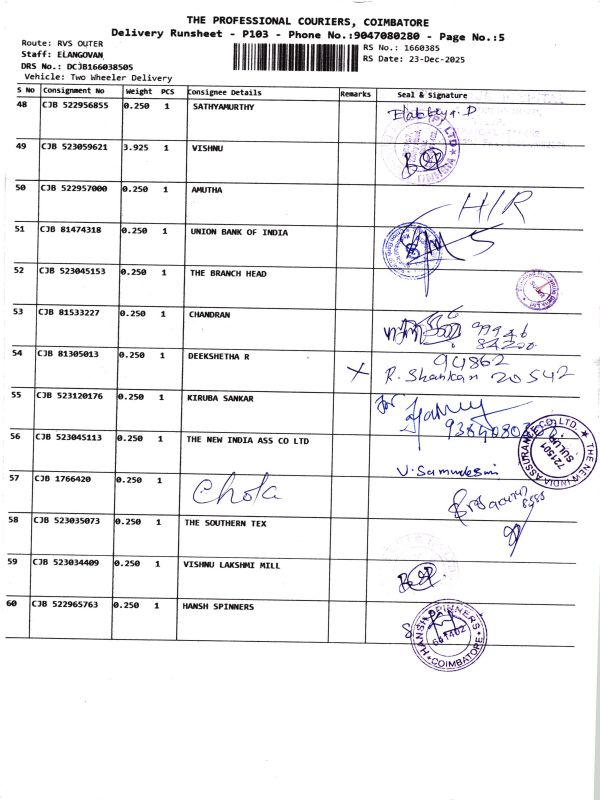 THE PROFESSIONAL COURIERS, COIMBATORE
Delivery Runsheet - P103 - Phone No.:9047080280 - Page No.:5
Route: RVS OUTER
RS No.: 1660385
Staff: ELANGOVAN
RS Date: 23-Dec-2025
DRS No.: DCJB166038505
Vehicle: Two Wheeler Delivery
S No Consignment No Weight PCS Consignee Details Remarks Seal & Signature
48 CJB 522956855 0.250 1 SATHYAMURTHY
49 CJB 523059621 3.925 1 VISHNU
50 CJB 522957000 0.250 1 AMUTHA H/R
51 CJB 81474318 0.250 1 UNION BANK OF INDIA
52 CJB 523045153 0.250 1 THE BRANCH HEAD
53 CJB 81533227 0.250 1 CHANDRAN
54 CJB 81305013 0.250 1 DEEKSHETHA R X 94862
R. Shankar 20542
55 CJB 523120176 0.250 1 KIRUBA SANKAR for
56 CJB 523045113 0.250 1 THE NEW INDIA ASS CO LTD
THE NEW INDIA ASSURANCE CO. LTD. 721501 SULUR
57 CJB 1766420 0.250 1 Chola
58 CJB 523035073 0.250 1 THE SOUTHERN TEX
59 CJB 523034409 0.250 1 VISHNU LAKSHMI MILL
60 CJB 522965763 0.250 1 HANSH SPINNERS
HANSH SPINNERS 641402 COIMBATORE